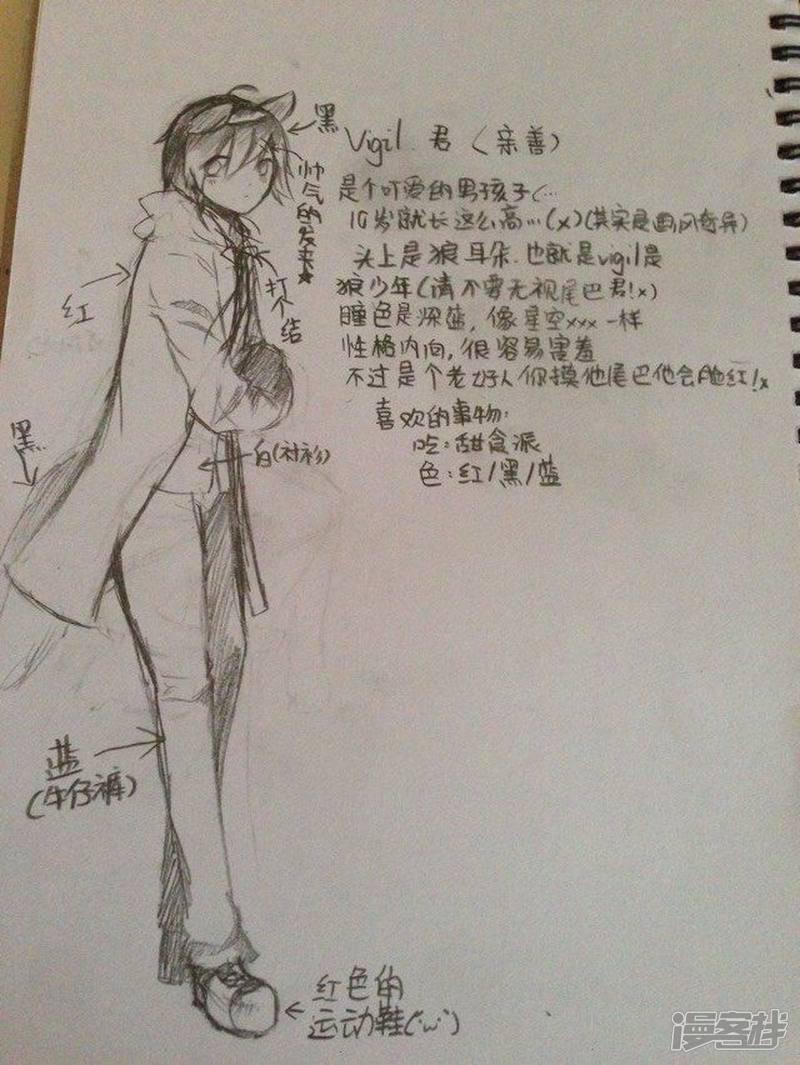 黑
Vigil 君（亲善）
帅气的发夹★
是个可爱的男孩子(…
10岁就长这么高…(x)(其实是画风奇异)
头上是狼耳朵.也就是vigil是
狼少年(请不要无视尾巴君!x)
瞳色是深蓝，像星空xxx一样
性格内向，很容易害羞
不过是个老好人你摸他尾巴他会脸红!x
红
打个结
喜欢的事物:
吃:甜食派
色:红/黑/蓝
黑
白(衬衫)
蓝
(牛仔裤)
红色的
运动鞋(·ω·)
漫客栈